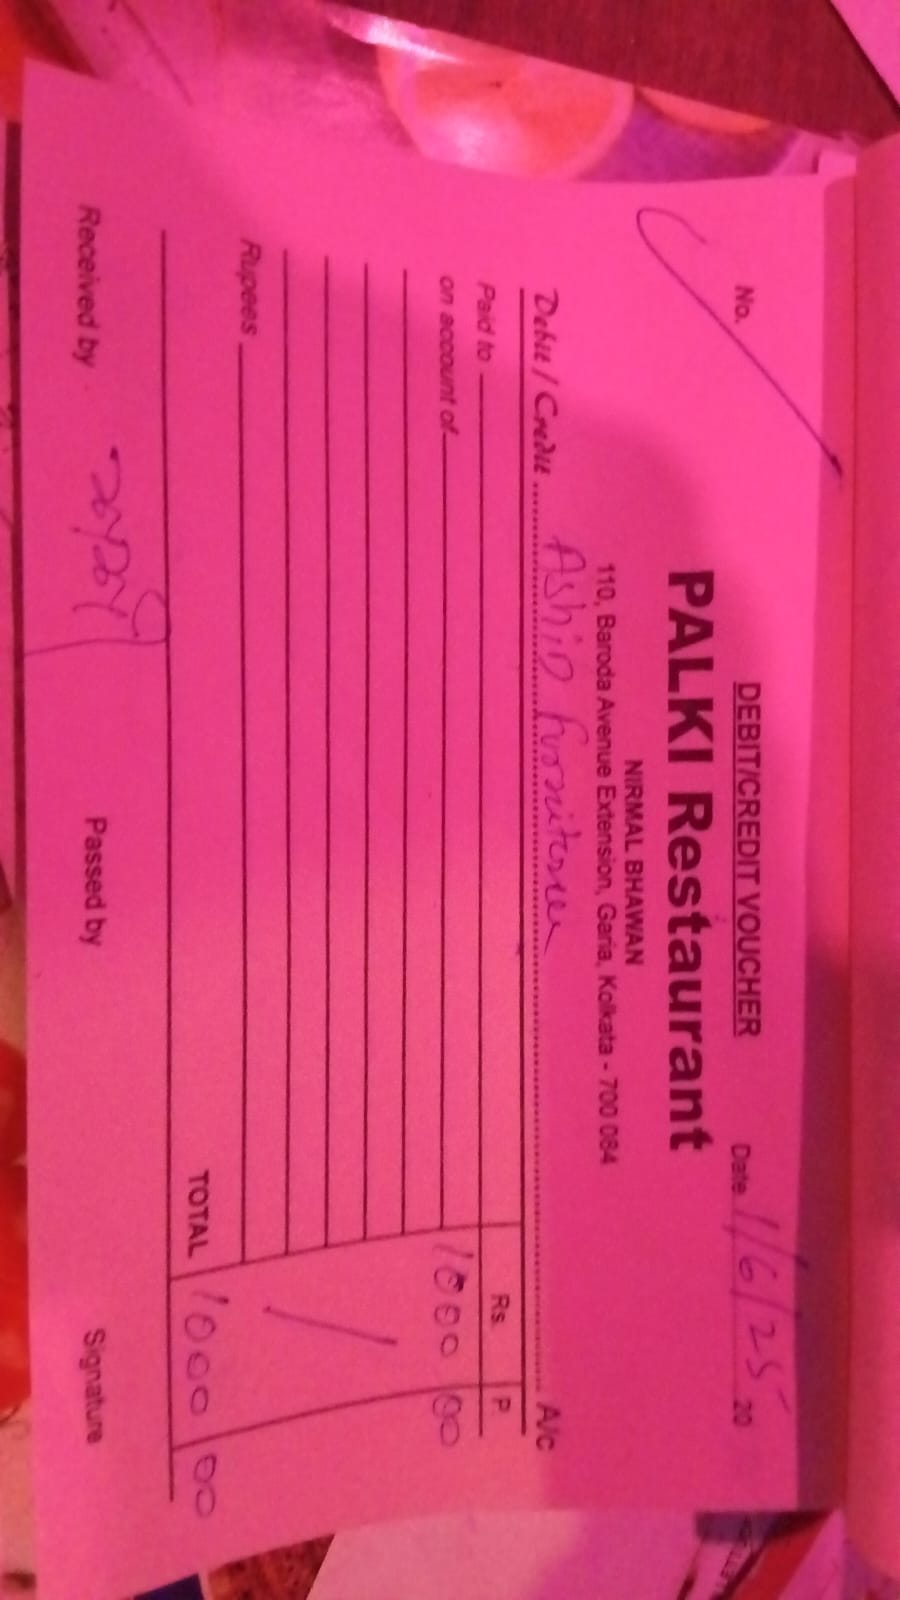 DEBIT/CREDIT VOUCHER
No. Date 1/6/25 20
PALKI Restaurant
NIRMAL BHAWAN
110, Baroda Avenue Extension, Garia, Kolkata - 700 084
Debit / Credit Ashin A/c
Paid to Rs. P.
on account of 1000 00
Rupees
TOTAL 1000 00
Received by Passed by Signature